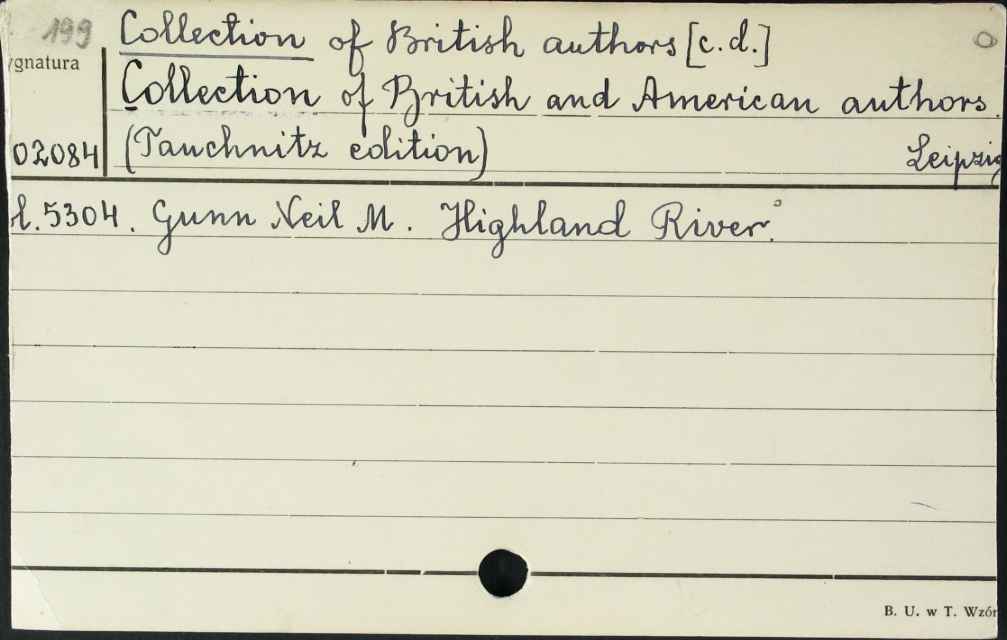 199 Collection of British authors [c.d.]
ygnatura
Collection of British and American authors.
02084 (Tauchnitz edition) Leipzig
l. 5304. Gunn Neil M. Highland River.
B. U. w T. Wzór